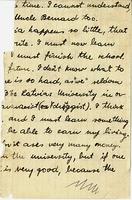 s time. I cannot understand
Uncle Bernard too.
ia happens so little, that
rite. I must now learn
I must finish the school,
future. I don't know what to
is so hard, seldom
The Latvias University in
and I must learn something
be able to earn my living.
costs very many money.
in the university, but if one
is very good, because the